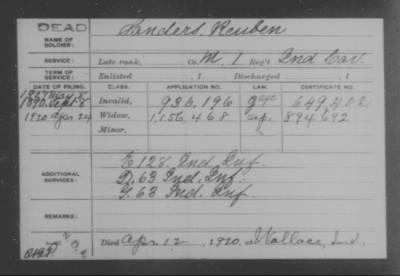 DEAD
NAME OF SOLDIER: Sanders Reuben
SERVICE: Late rank, Co. M, 1 Reg't Ind Cav.
TERM OF SERVICE: Enlisted , 1 Discharged , 1
DATE OF FILING. CLASS. APPLICATION NO. LAW. CERTIFICATE NO.
1890 Sept 8 Invalid, 936,196 649,402
1920 Apr 24 Widow, 1,156,468 894,692
Minor,
ADDITIONAL SERVICES: E 128 Ind. Inf.
D. 63 Ind. Inf.
G. 63 Ind. Inf.
REMARKS:
Died Apr 12, 1920, Wallace, Ind.